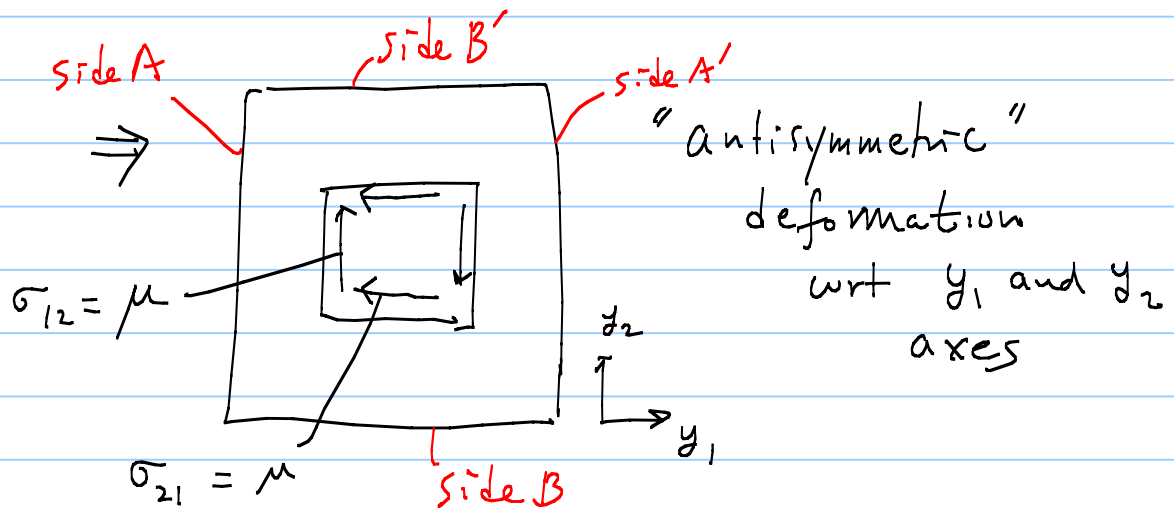 side B′
side A
side A′
"antisymmetric"
deformation
wrt y₁ and y₂
axes
σ₁₂ = μ
y₂
y₁
σ₂₁ = μ
side B